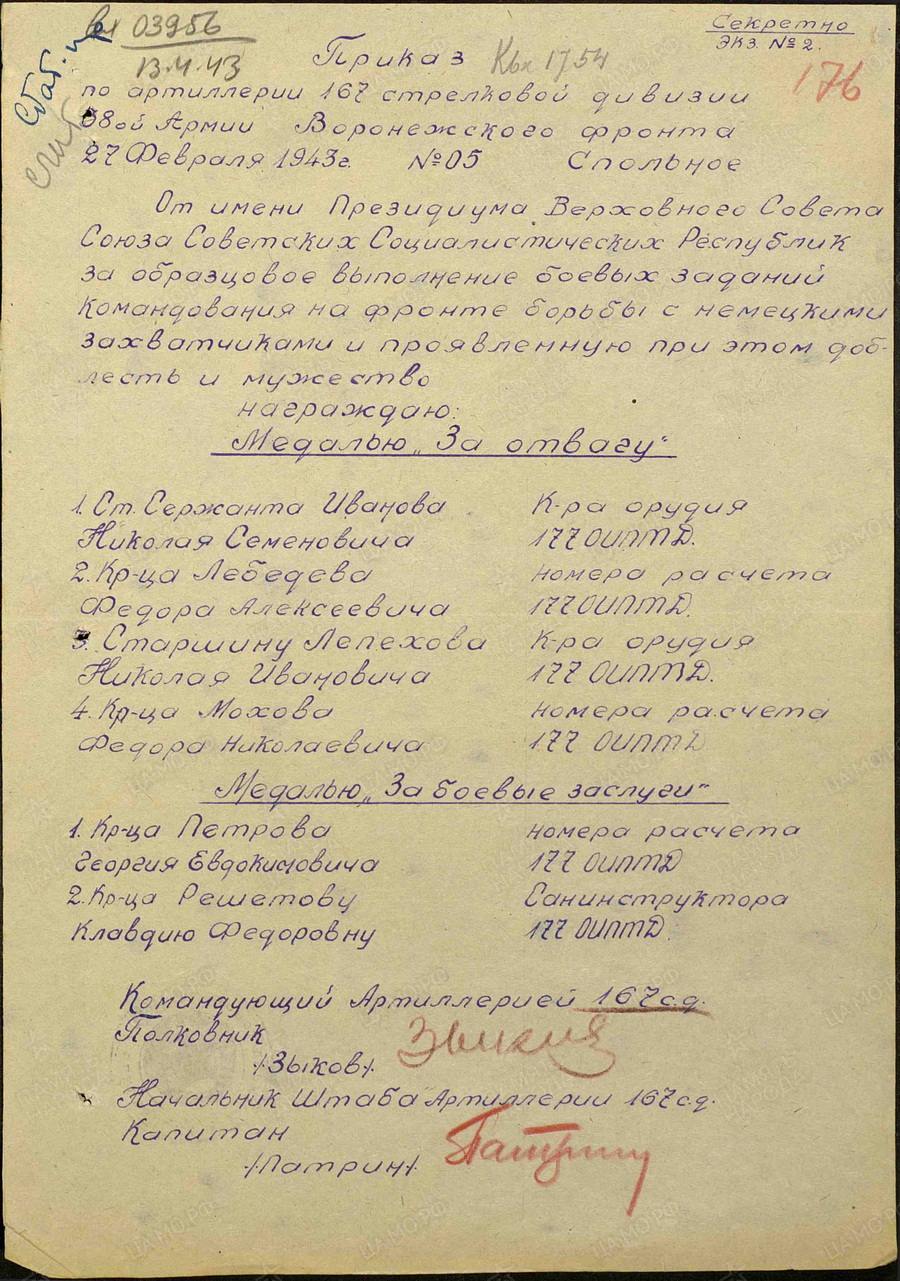 вх 03956
13.4.43
Секретно
Экз. № 2.
Приказ
176
по артиллерии 167 стрелковой дивизии
38ой Армии Воронежского фронта
27 Февраля 1943г. №05 Спольное
От имени Президиума Верховного Совета
Союза Советских Социалистических Республик
за образцовое выполнение боевых заданий
командования на фронте борьбы с немецкими
захватчиками и проявленную при этом доб-
лесть и мужество
награждаю:
Медалью „За отвагу"
1. Ст. Сержанта Иванова К-ра орудия
Николая Семеновича 177 ОИПТД.
2. Кр-ца Лебедева номера расчета
Федора Алексеевича 177 ОИПТД.
3. Старшину Лепехова К-ра орудия
Николая Ивановича 177 ОИПТД.
4. Кр-ца Мохова номера расчета
Федора Николаевича 177 ОИПТД
Медалью „За боевые заслуги"
1. Кр-ца Петрова номера расчета
Георгия Евдокимовича 177 ОИПТД
2. Кр-ца Решетову Санинструктора
Клавдию Федоровну 177 ОИПТД.
Командующий Артиллерией 167 с.д.
Полковник
/Зыков/.
Начальник Штаба Артиллерии 167 с.д.
Капитан
/Патрин/.